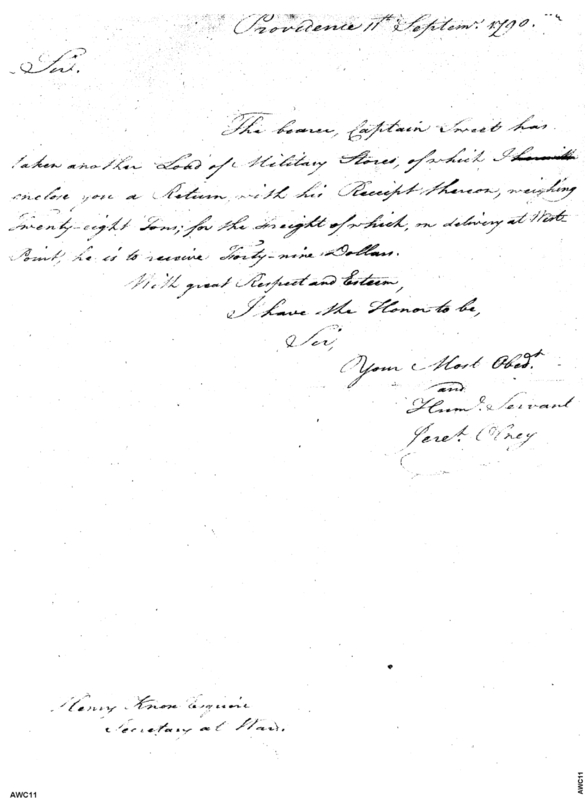 Providence 11th Septemr. 1790.
Sir.
The bearer, Captain Sweet has
taken another Load of Military Stores, of which I herewith
enclose you a Return with his Receipt thereon, weighing
Twenty-eight Tons; for the freight of which, on delivery at West
Point, he is to receive Forty-nine Dollars.
With great Respect and Esteem,
I have the Honor to be,
Sir,
Your Most Obedt.
and
Humb. Servant
Jereh. Olney
Henry Knox Esquire
Secretary at War.
AWC11
AWC11